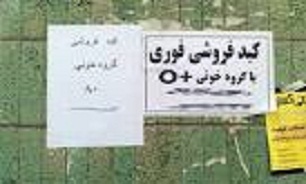 کبد فروشی
گروه خونی
کبد فروشی فوری
با گروه خونی +O